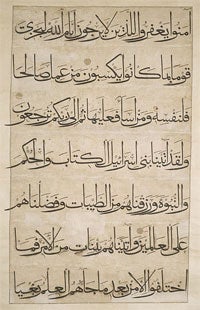 امنوا يغفروا للذين لا يرجون ايام الله ليجزى
قوما بما كانوا يكسبون من عمل صالحا
فلنفسه ومن اساء فعليها ثم الى ربكم ترجعون
ولقد اتينا بنى اسرائيل الكتاب والحكم
والنبوة ورزقناهم من الطيبات وفضلناهم
على العالمين واتيناهم بينات من الامر فما
اختلفوا الا من بعد ما جاءهم العلم بغيا